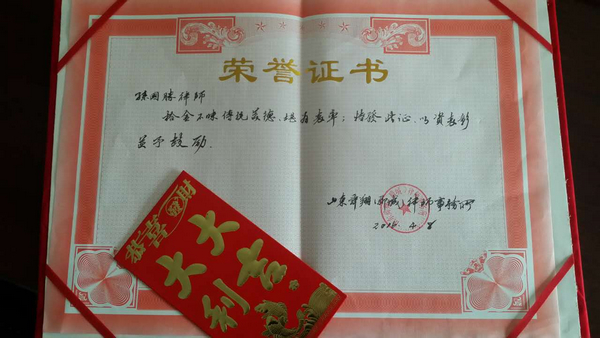 荣誉证书
孙国胜律师
拾金不昧传统美德,堪为表率;特發此证.以資表彰
并予鼓励.
山东舜翔(历城)律师事务所
2016.4.8
恭喜發財
大大吉利